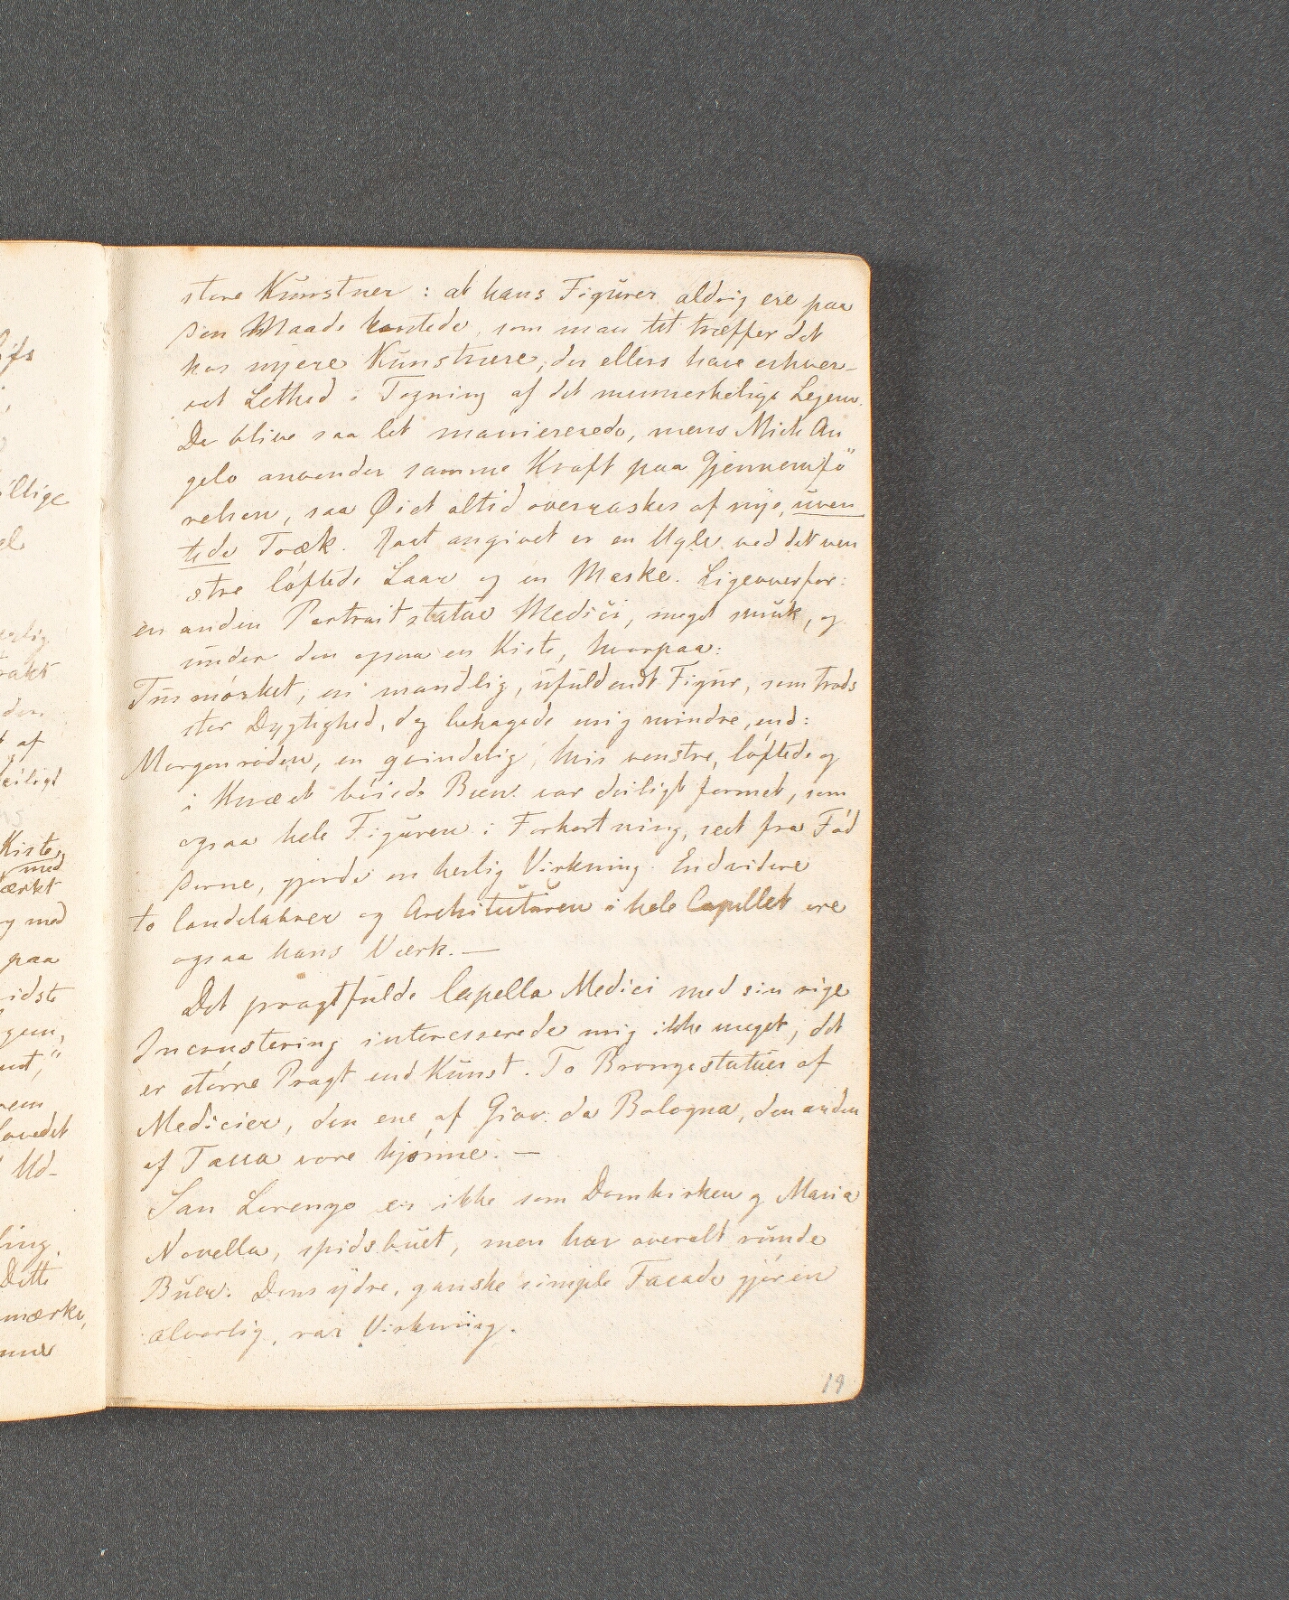 store Kunstner: at hans Figurer aldrig ere paa
den Maade kantede, som man tit træffer det
hos nyere Kunstnere, der ellers have erhver-
vet Lethed i Tegning af det menneskelige Legem.
De blive saa let maniererede, mens Mich An
gelo anvender samme Kraft paa Gjennemfö
relsen, saa Øiet altid overraskes af nye, uven
tede Træk. Raat angivet er en Ugle ved det ven
stre løftede Laar og en Maske. Ligeoverfor:
en anden Portraitstatue Medici, meget smuk, og
under den ogsaa en Kiste, hvorpaa:
Tusmørket, en mandlig, ufuldendt Figur, som trods
stor Dygtighed, dog behagede mig mindre, end:
Morgenrøden, en qvindelig, hvis venstre, løftede og
i Knæet böiede Been var deiligt formet, som
ogsaa hele Figuren i Forkortning, seet fra Fød
derne, gjorde en herlig Virkning. Endvidere
to Candelabrer og Architecturen i hele Capellet ere
ogsaa hans Værk. —
Det pragtfulde Capella Medici med sin rige
Incrustering interesserede mig ikke meget; det
er større Pragt end Kunst. To Bronzestatuer af
Medicier, den ene af Giov. da Bologna, den anden
af Tacca vare hjønne. —
San Lorenzo er ikke som Domkirken og Maria
Novella, spidsbuet, men har overalt runde
Buer. Dens ydre, ganske simple Facade gjör en
alvorlig, Virkning.
19